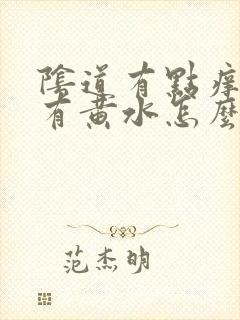 陰道有點痒
有黃水怎麼
范杰明